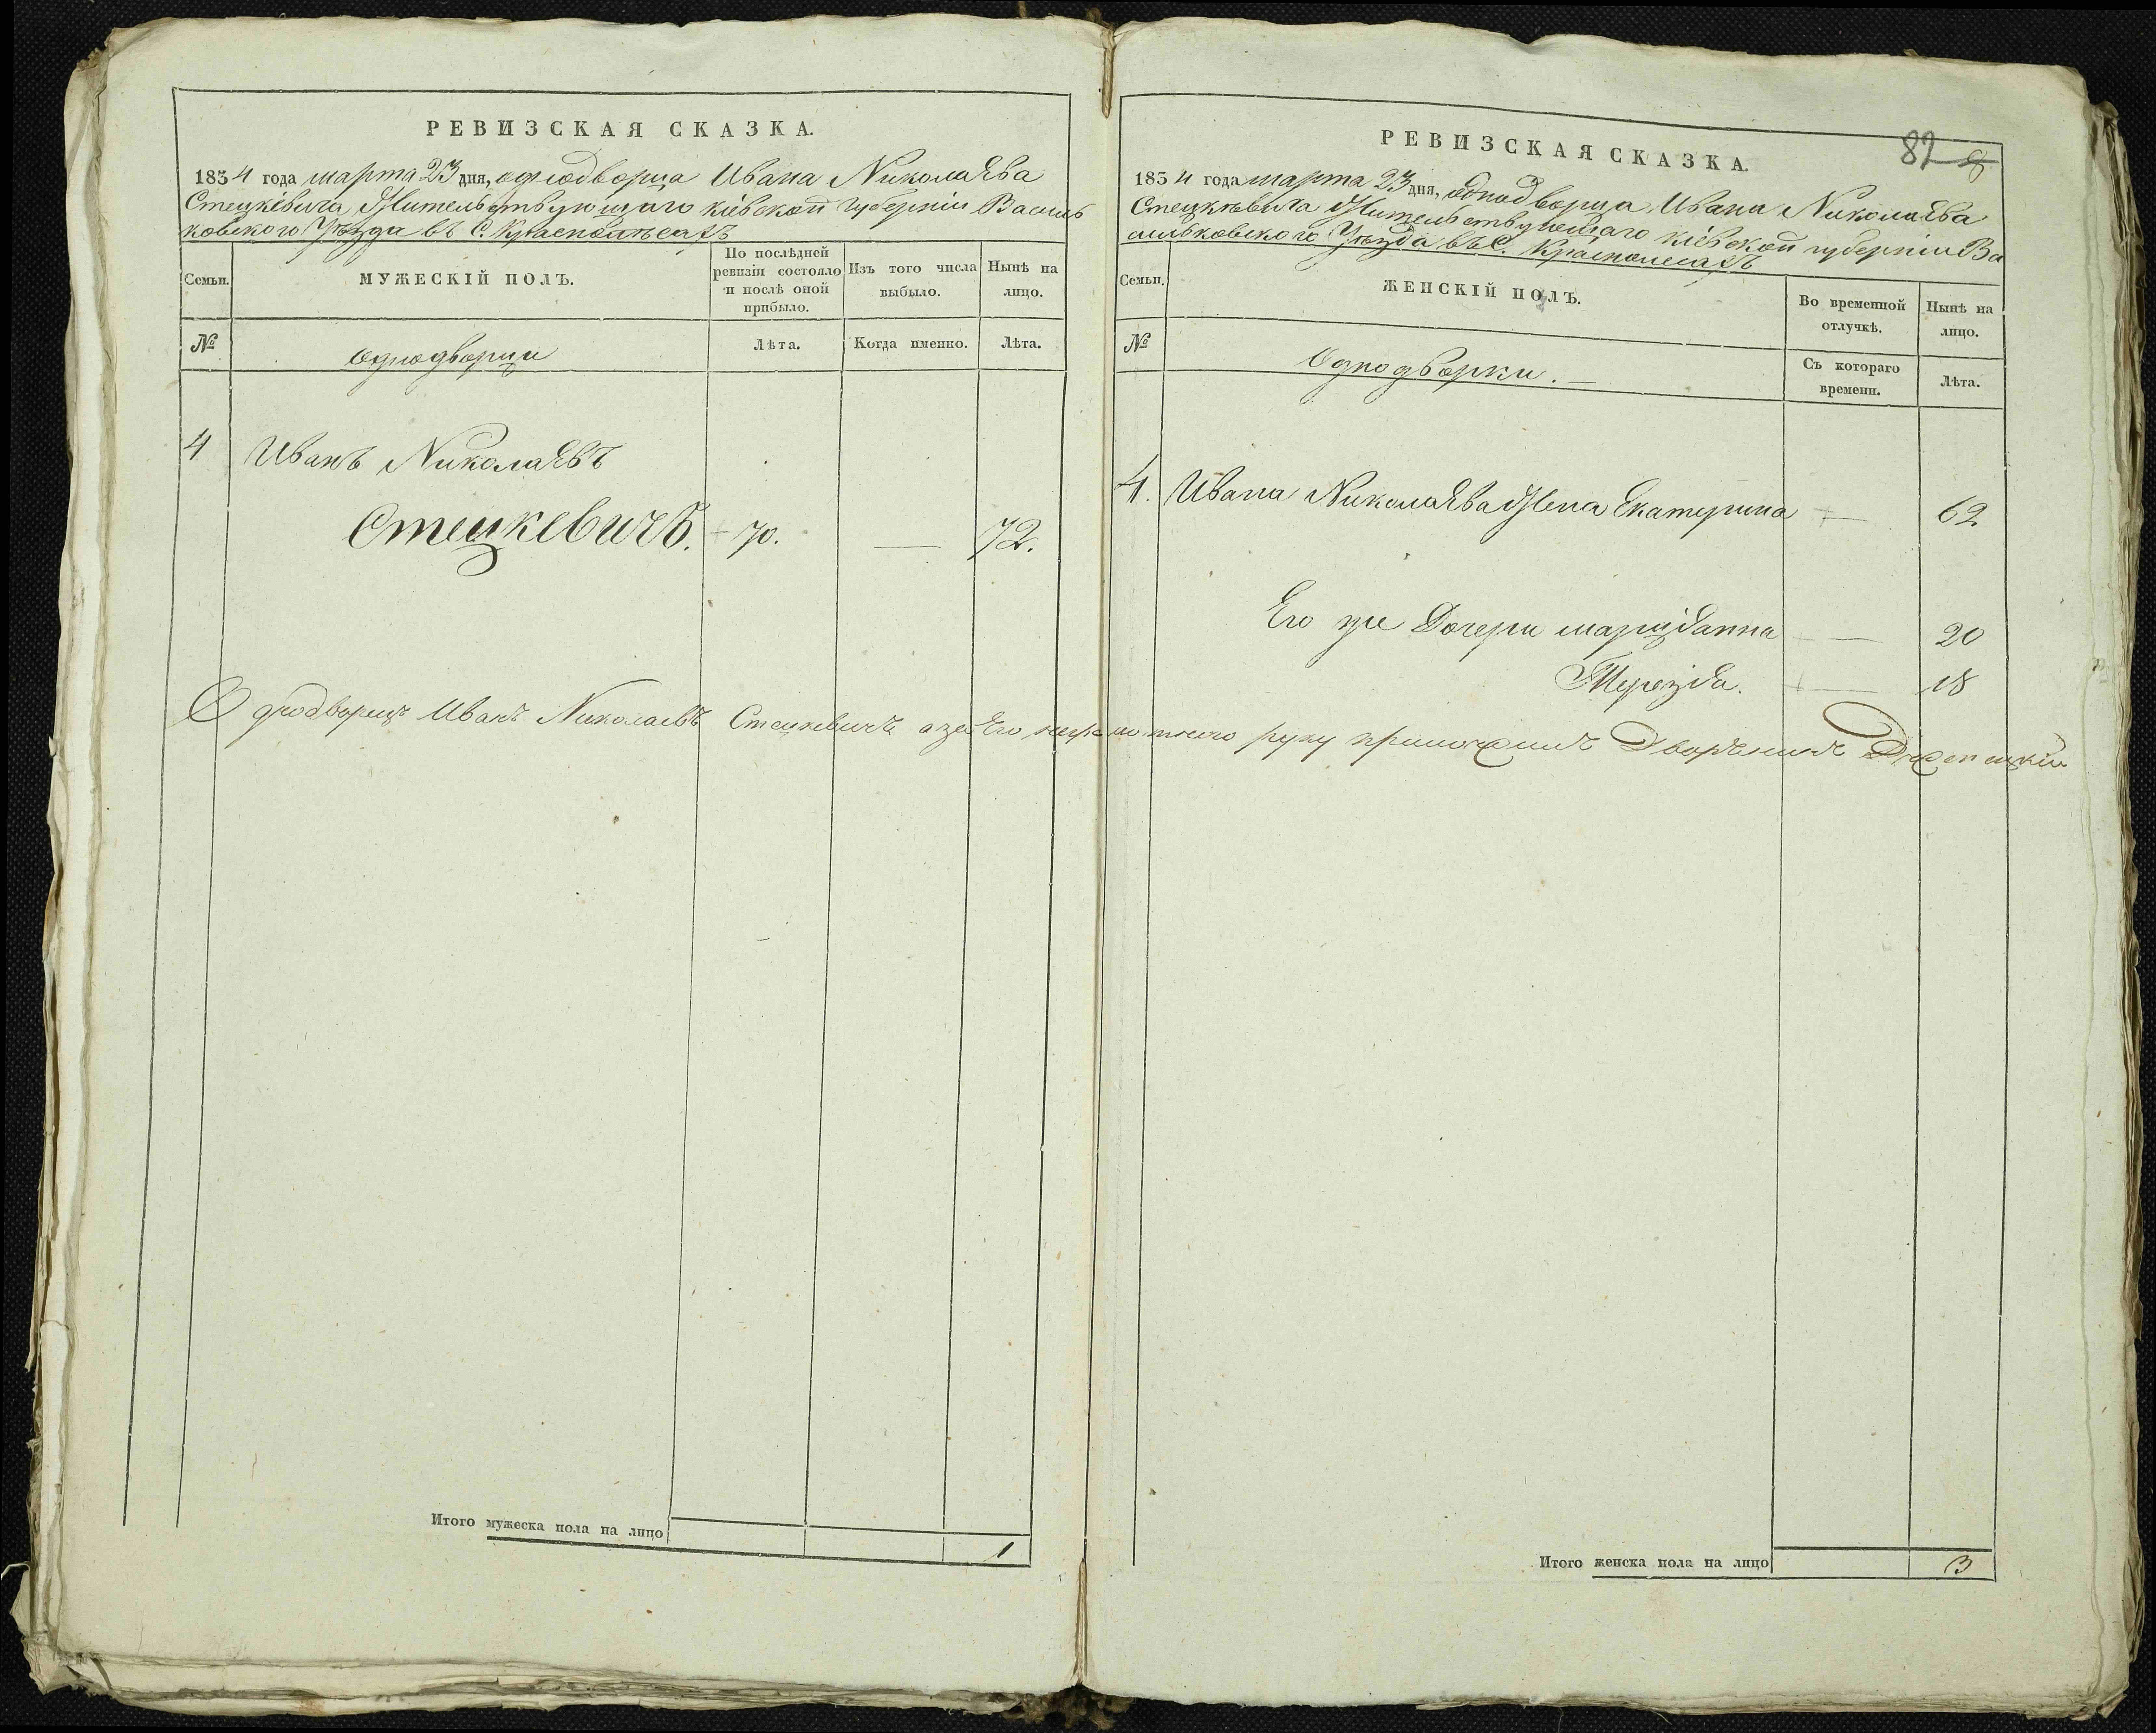 РЕВИЗСКАЯ СКАЗКА.
1834 года марта 23 дня, однодворца Ивана Николаева
Стецкевича Жительствующаго кіевской губерніи Василь
ковского Уѣзда въ С.
Семьи.
МУЖЕСКІЙ ПОЛЪ.
По послѣдней ревизіи состояло и послѣ оной прибыло.
Изъ того числа выбыло.
Нынѣ на лицо.
№
Однодворцы
Лѣта.
Когда именно.
Лѣта.
4 Иванъ Николаевъ
Стецкевичъ. 70. — 72.
Однодворецъ Иванъ Николаевъ Стецкевичъ а за Его неграмотного руку приложилъ Дворянинъ
Итого мужеска пола на лицо 1
82
РЕВИЗСКАЯ СКАЗКА.
1834 года марта 23 дня, однодворца Ивана Николаева
Жительствующаго кіевской губерніи Ва
сильковского Уѣзда въ С.
Семьи.
ЖЕНСКІЙ ПОЛЪ.
Во временной отлучкѣ.
Нынѣ на лицо.
№
Однодворки.
Съ котораго времени.
Лѣта.
4. Ивана Николаева Жена Екатерина — 62
Его же Дочери марціанна — 20
Терезіа. — 18
Итого женска пола на лицо 3